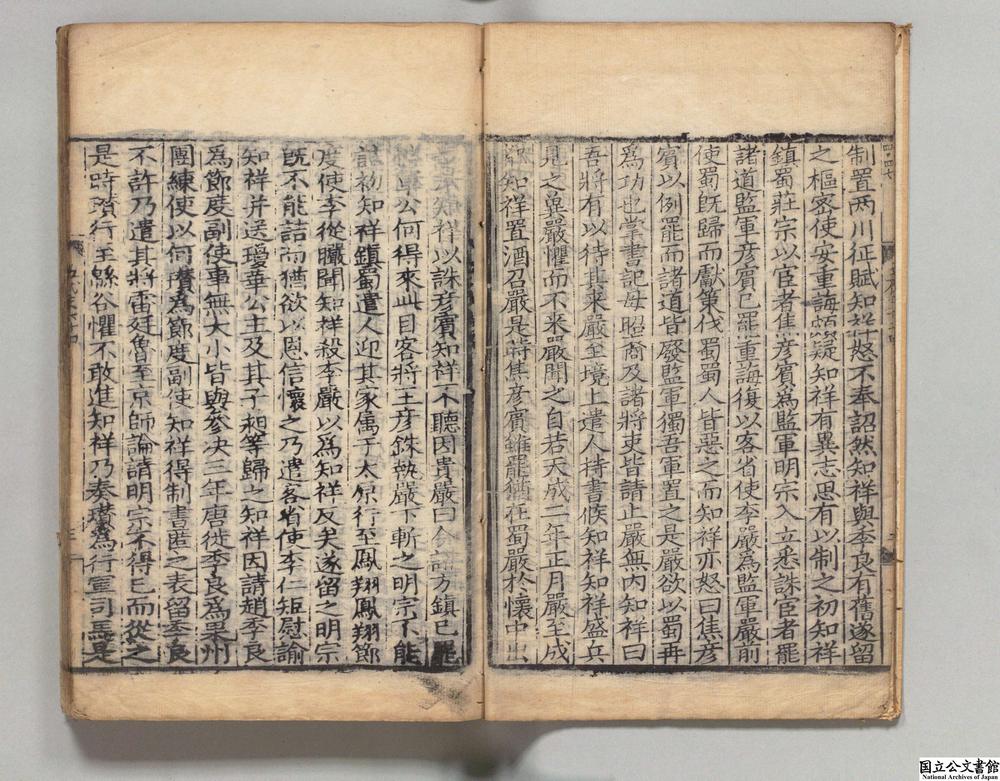 制置两川征賦知祥怒不奉詔然知祥與季良有舊遂留
之樞密使安重誨頗疑知祥有異志思有以制之初知祥
鎮蜀莊宗以宦者焦彦賓爲監軍明宗入立悉誅宦者罷
諸道監軍彦賓已罷重誨復以客省使李嚴爲監軍嚴前
使蜀既歸而獻策伐蜀蜀人皆惡之而知祥亦怒曰焦彦
賓以例罷而諸道皆廢監軍獨吾軍置之是嚴欲以蜀再
爲功也掌書記母昭裔及諸將吏皆請止嚴無内知祥曰
吾將有以待其来嚴至境上遣人持書候知祥知祥盛兵
見之冀嚴懼而不来嚴聞之自若天成二年正月嚴至成
都知祥置酒召嚴是時焦彦賓雖罷猶在蜀嚴於懷中出
知祥以誅彦賓知祥不聽因責嚴曰今諸方鎮已罷
監軍公何得来此目客將王彦銖執嚴下斬之明宗不能
詰初知祥鎮蜀遣人迎其家屬于太原行至鳳翔鳳翔節
度使李從曮聞知祥殺李嚴以爲知祥反矣遂留之明宗
既不能詰而猶欲以恩信懷之乃遣客省使李仁矩慰諭
知祥并送瓊華公主及其子昶等歸之知祥因請趙季良
爲節度副使事無大小皆與參决三年唐徙季良爲果州
團練使以何瓚爲節度副使知祥得制書匿之表留季良
不許乃遣其將雷廷魯至京師論請明宗不得已而從之
是時瓚行至緜谷懼不敢進知祥乃奏瓚爲行軍司馬是
国立公文書館
National Archives of Japan